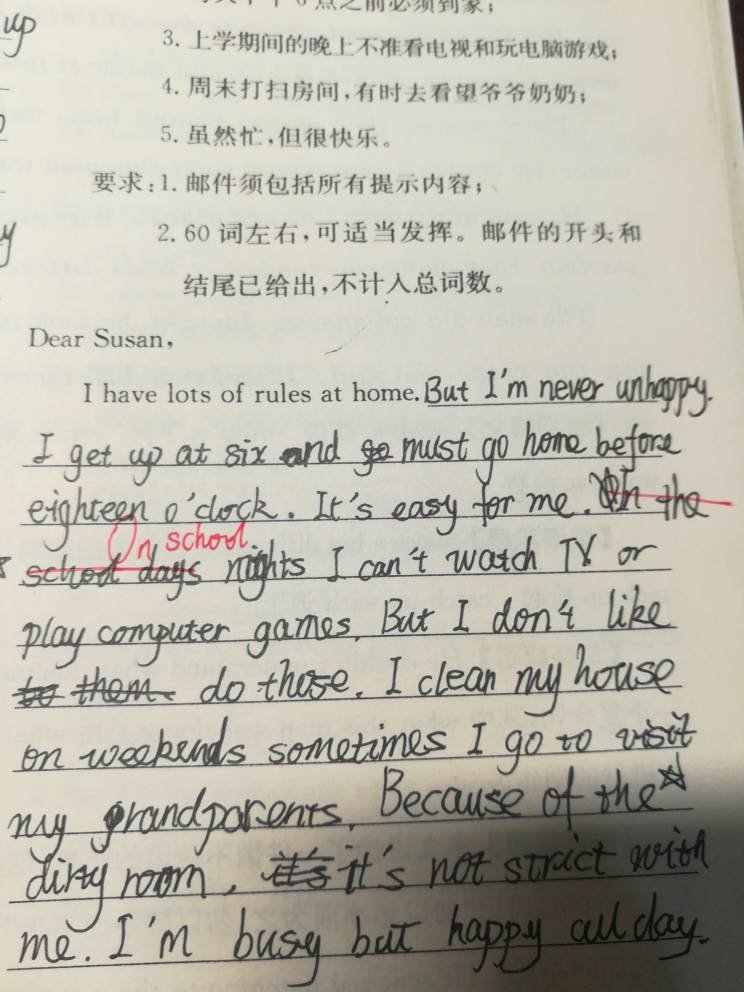 up
点之前必须到家；
3. 上学期间的晚上不准看电视和玩电脑游戏；
4. 周末打扫房间，有时去看望爷爷奶奶；
5. 虽然忙，但很快乐。
要求：1. 邮件须包括所有提示内容；
2. 60 词左右，可适当发挥。邮件的开头和
结尾已给出，不计入总词数。
Dear Susan,
I have lots of rules at home. But I'm never unhappy.
I get up at six and must go home before
eighteen o'clock. It's easy for me. On the
On school
school days nights I can't watch TV or
play computer games. But I don't like
to them do these. I clean my house
on weekends sometimes I go to visit
my grandparents. Because of the
dirty room, it's it's not strict with
me. I'm busy but happy all day.